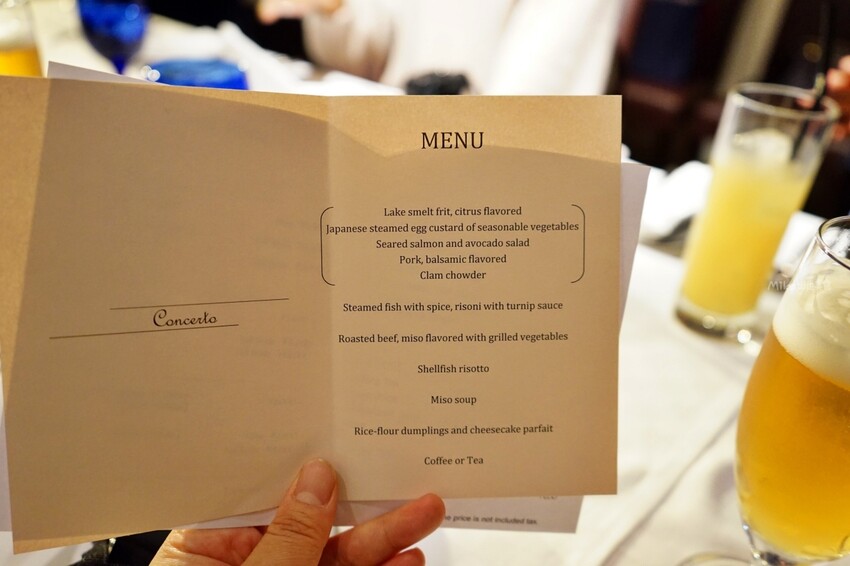 Concerto
MENU
Lake smelt frit, citrus flavored
Japanese steamed egg custard of seasonable vegetables
Seared salmon and avocado salad
Pork, balsamic flavored
Clam chowder
Steamed fish with spice, risoni with turnip sauce
Roasted beef, miso flavored with grilled vegetables
Shellfish risotto
Miso soup
Rice-flour dumplings and cheesecake parfait
Coffee or Tea
price is not included tax.